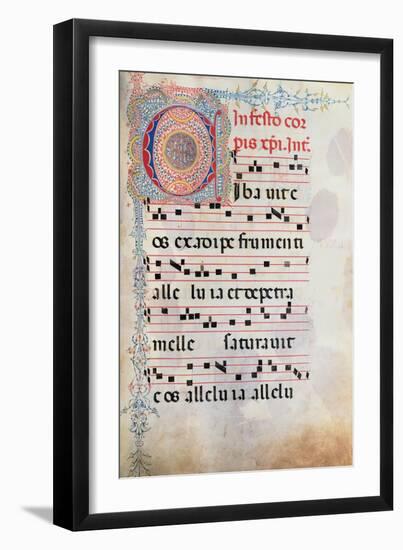 In festo cor
pis xpi. Int.
Ciba uit e
os ex adipe frumenti
alle lu ia et de petra
melle saturauit
e os allelu ia allelu